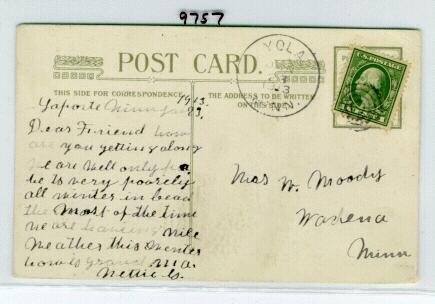 9757
POST CARD.
YOLA
THIS SIDE FOR CORRESPONDENCE
THE ADDRESS TO BE WRITTEN
ON THIS SIDE
U.S. POSTAGE
1913.
Laporte Minn Jan 23.
Dear Friend how
are you getting along
we are well only pa
he is very poorely
all winter in bead
the most of the time
we are haveing nice
weather this winter
how is grand ma.
Nettie G.
Mrs W. Moody
Wadena
Minn